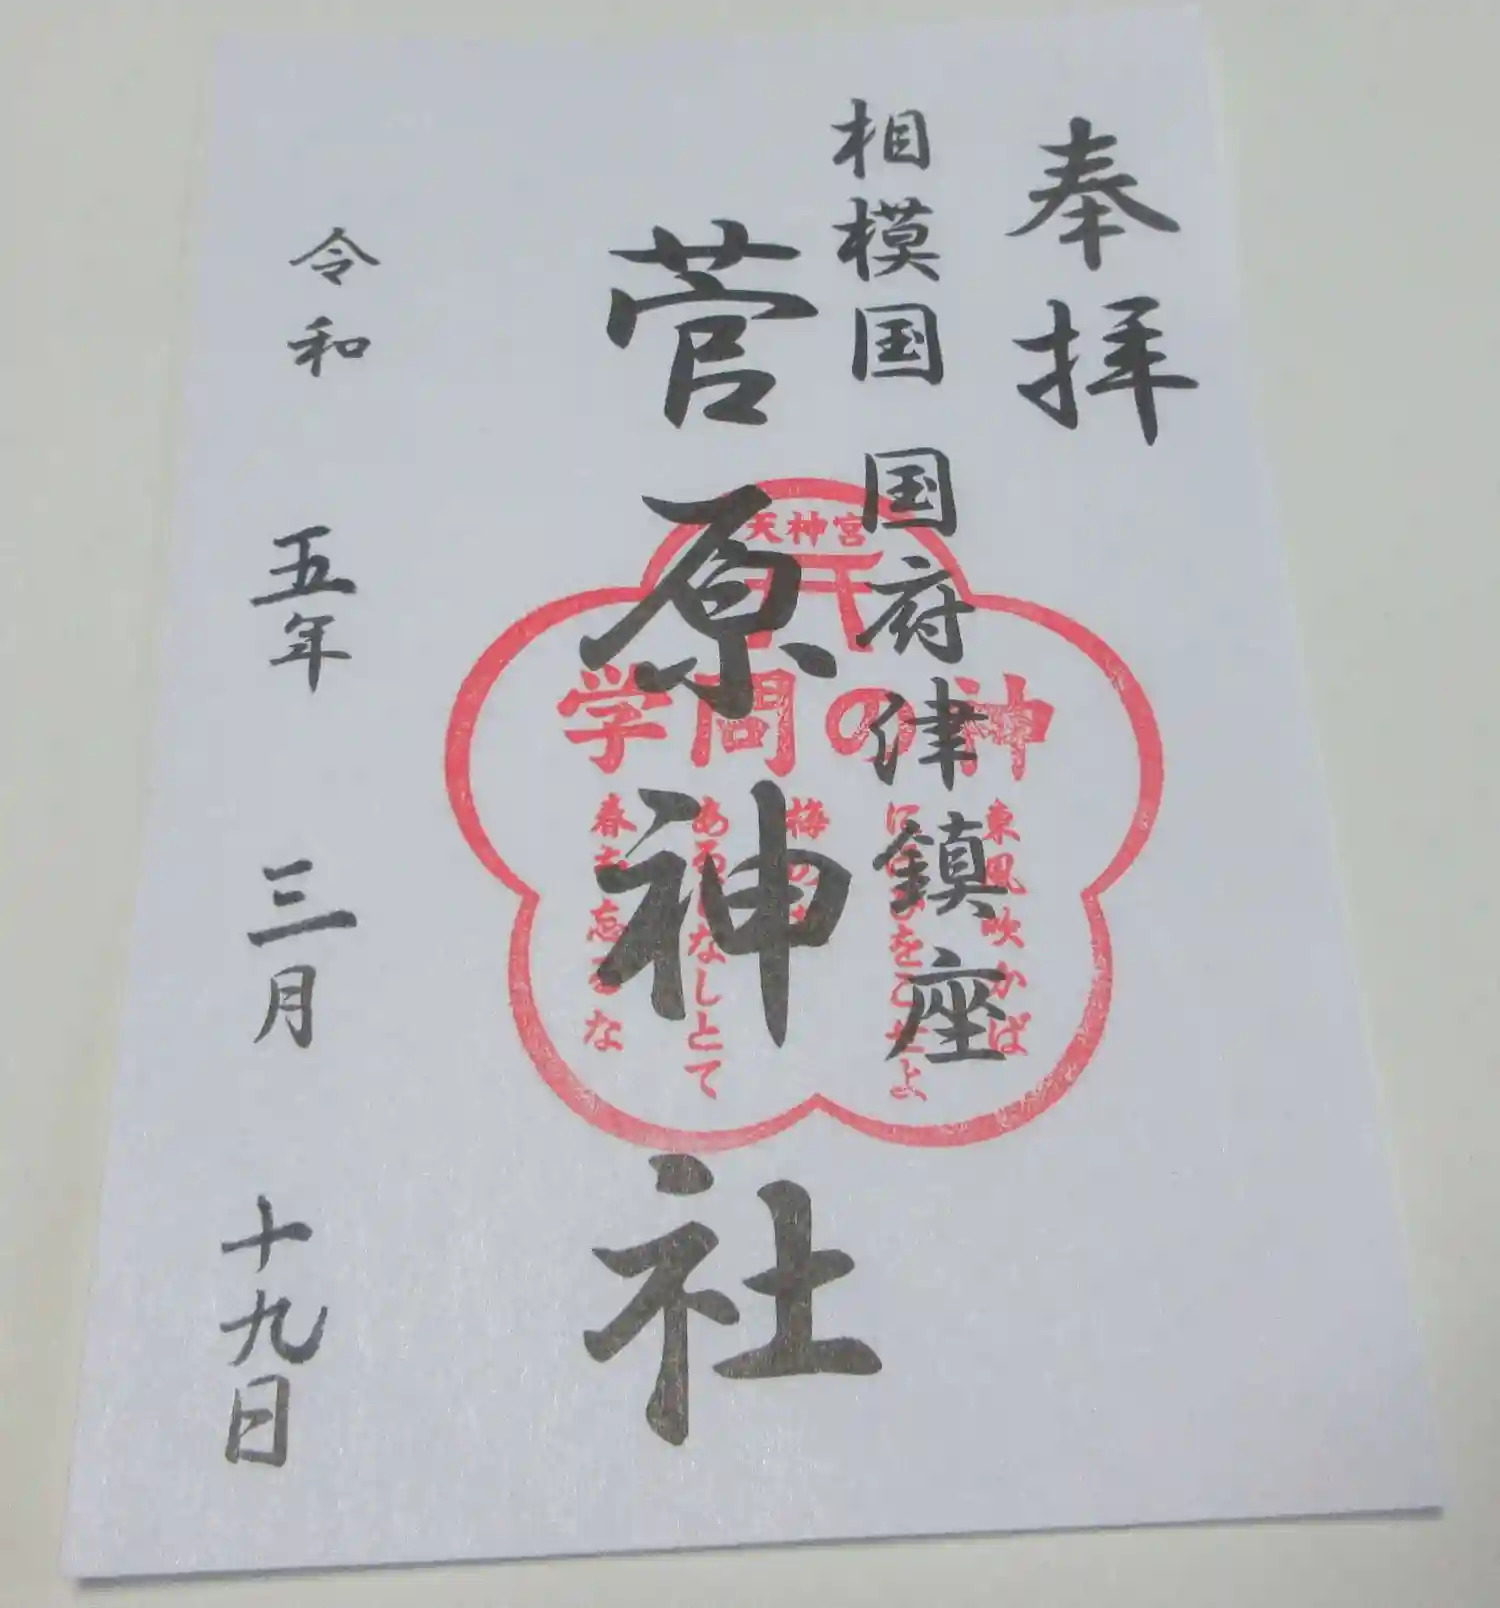 奉拝
相模国 国府津鎮座
菅原神社
令和 五年 三月 十九日
天神宮
学問の神
東風吹かば
にほひをこせよ
梅の
あるじなしとて
春を忘るな